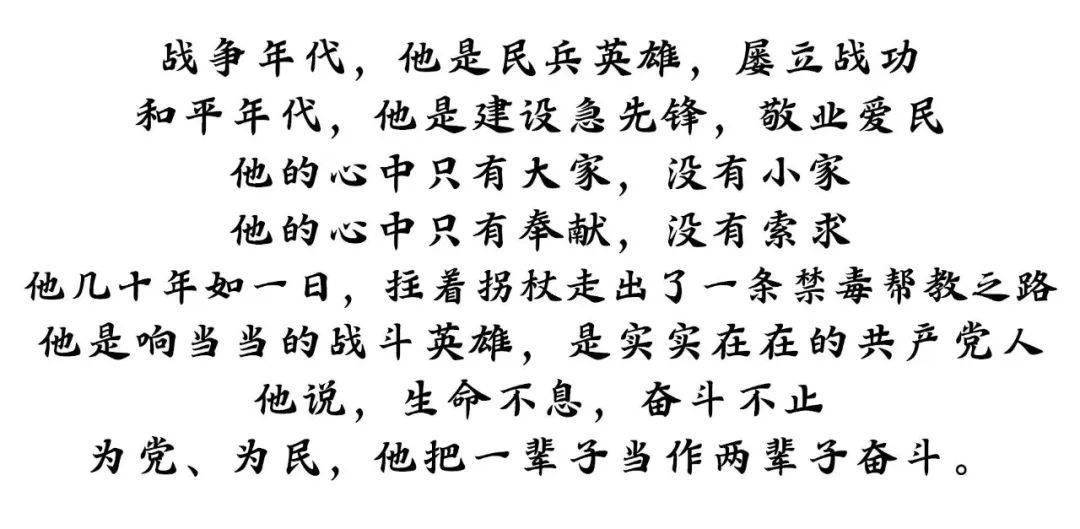 战争年代，他是民兵英雄，屡立战功
和平年代，他是建设急先锋，敬业爱民
他的心中只有大家，没有小家
他的心中只有奉献，没有索求
他几十年如一日，拄着拐杖走出了一条禁毒帮教之路
他是响当当的战斗英雄，是实实在在的共产党人
他说，生命不息，奋斗不止
为党、为民，他把一辈子当作两辈子奋斗。